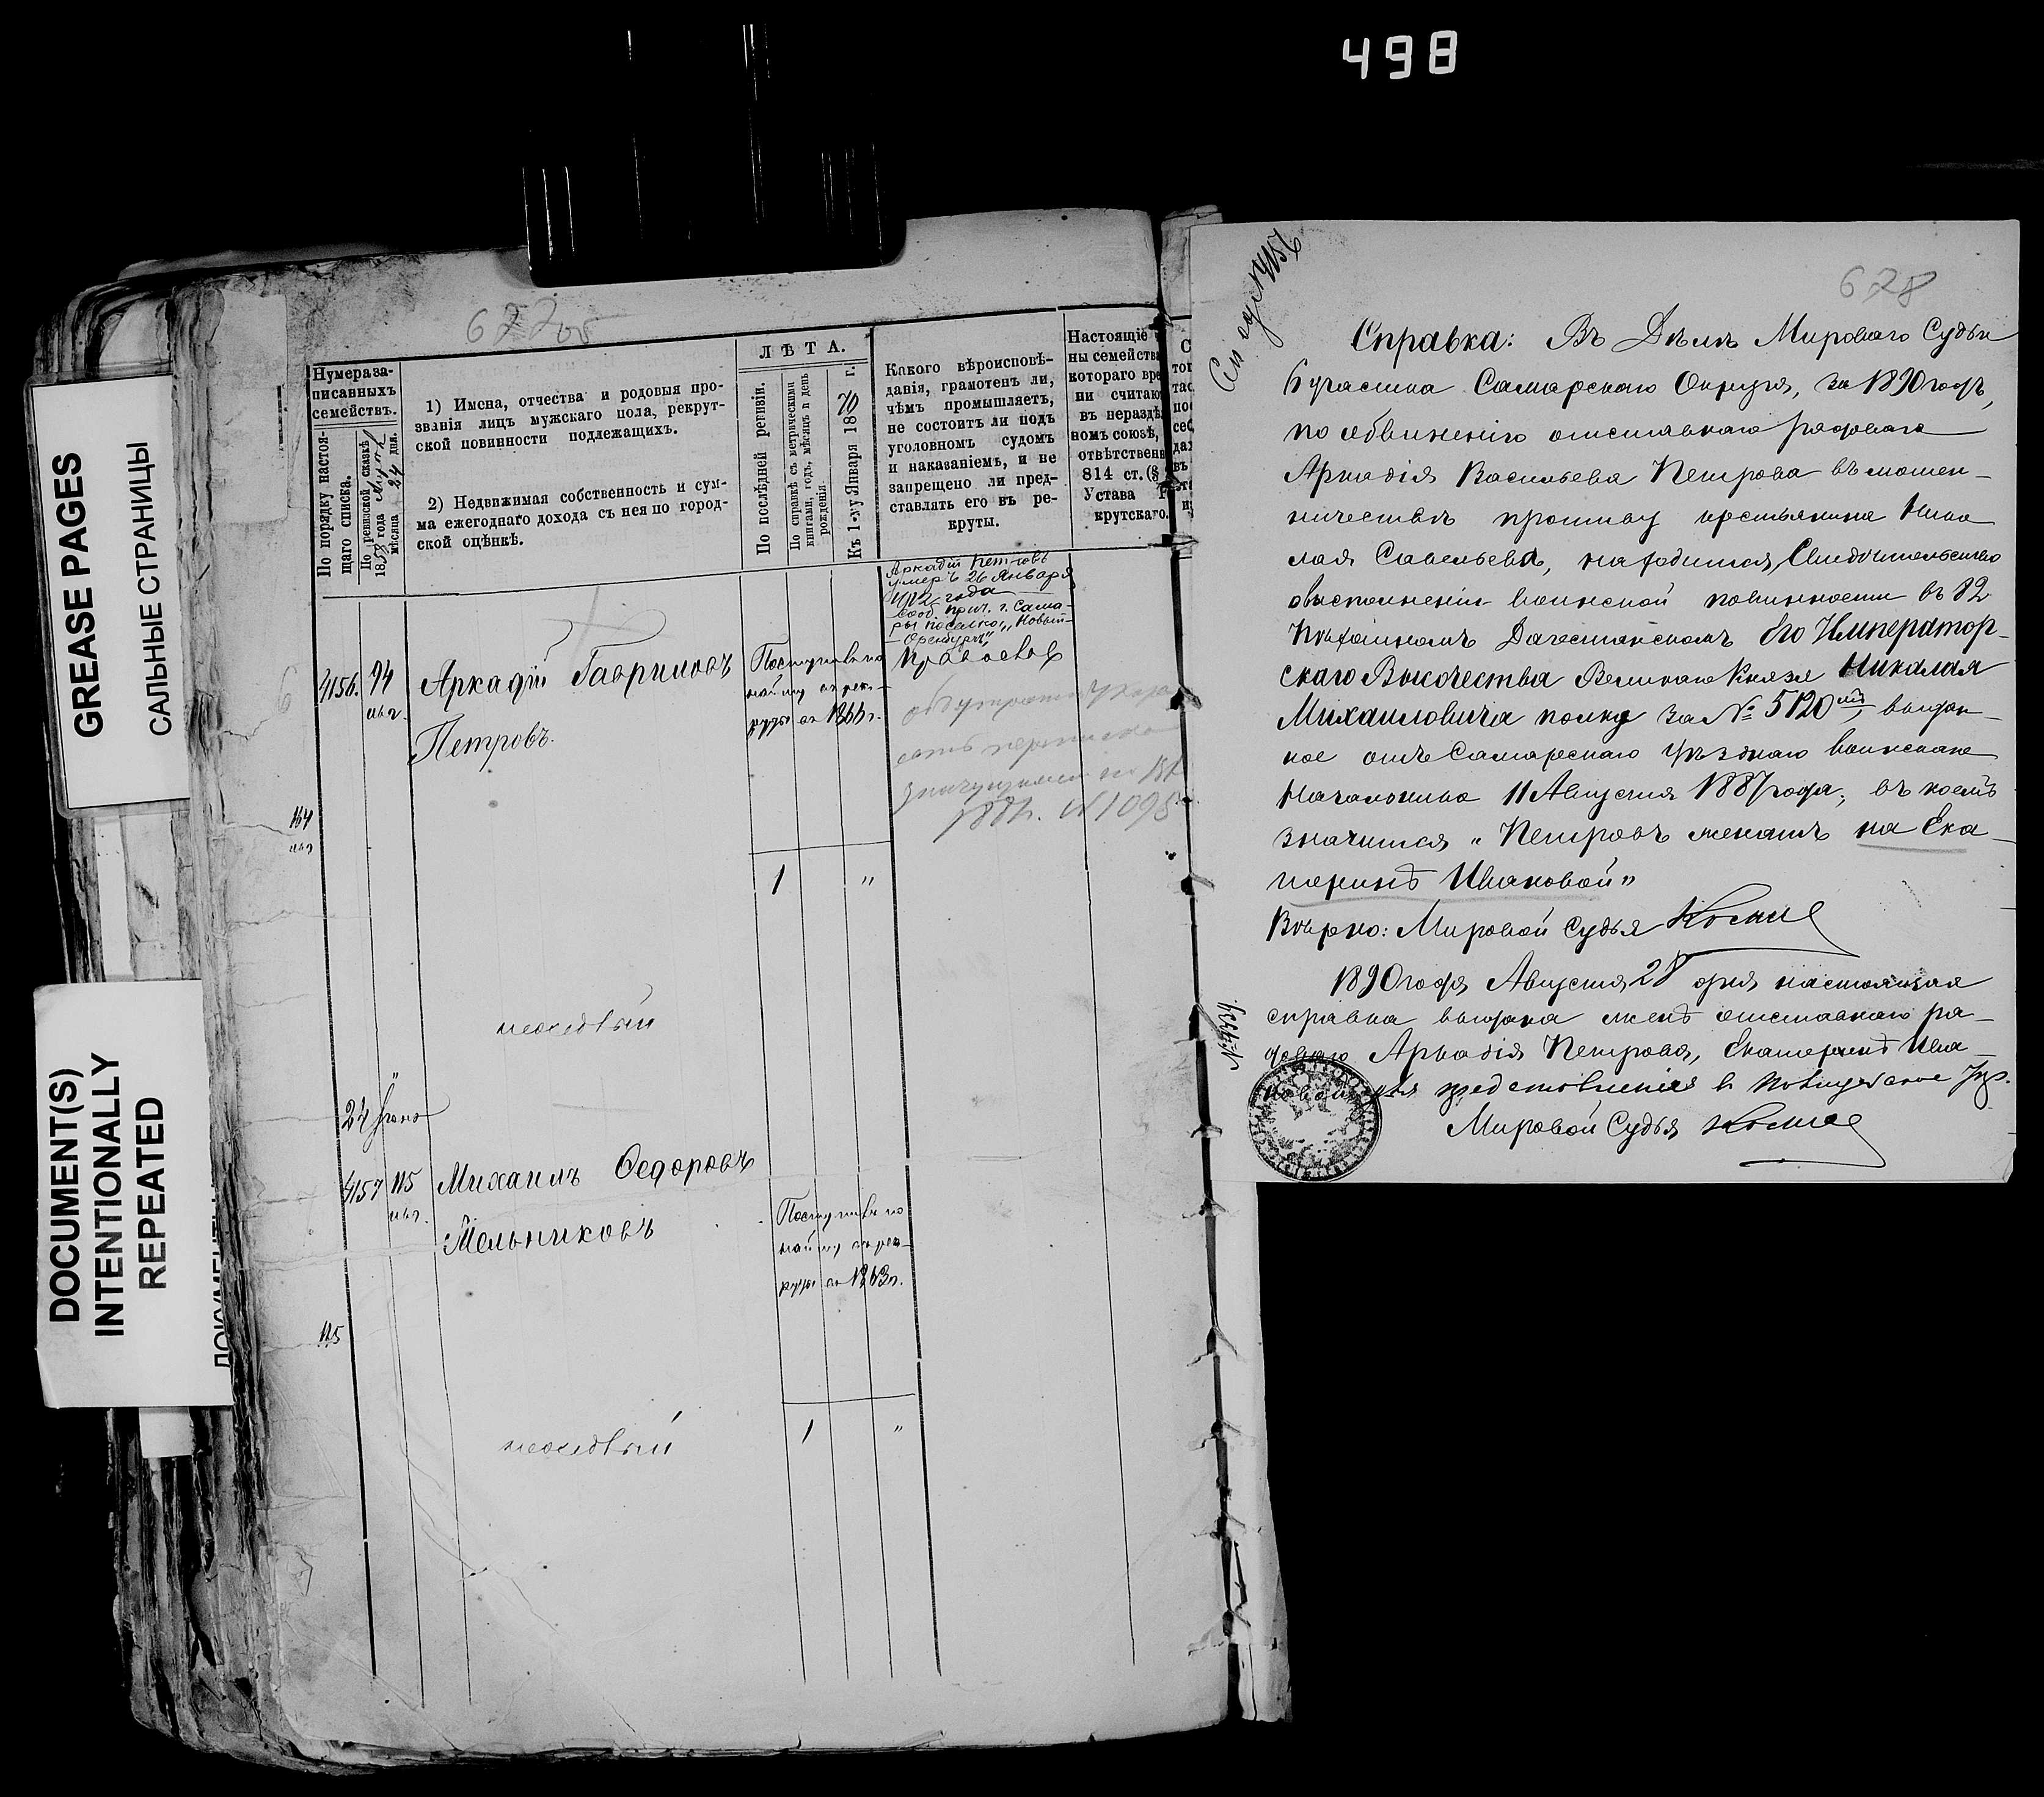 498
GREASE PAGES
САЛЬНЫЕ СТРАНИЦЫ
DOCUMENT(S)
INTENTIONALLY
REPEATED
677 об
Нумера за-
писанныхъ
семействъ.
По порядку настоя-
щаго списка.
По ревизской сказкѣ
1858 года
мѣсяца 24 дня.
1) Имена, отчества и родовыя про-
званія лицъ мужскаго пола, рекрут-
ской повинности подлежащихъ.
2) Недвижимая собственность и сум-
ма ежегоднаго дохода съ нея по город-
ской оцѣнкѣ.
ЛѢТА.
По послѣдней ревизіи.
По справкѣ съ метрическими
книгами, годъ, мѣсяцъ и день
рожденія.
Къ 1-му Января 1870 г.
Какого вѣроисповѣ-
данія, грамотенъ ли,
чѣмъ промышляетъ,
не состоитъ ли подъ
уголовномъ судомъ
и наказаніемъ, и не
запрещено ли пред-
ставлять его въ ре-
круты.
Настоящіе
ны семейств
котораго вре
ни считаю
въ нераздѣ
номъ союзѣ,
отвѣтственн
814 ст. (§
Устава Р
крутскаго.
Аркадій Петровъ
умеръ 26 Января
года
сооб. прич. г. Сама-
ры поселка „Новый-
Оренбургъ“
4156. 94
мѣщ.
Аркадій Гавриловъ
Петровъ.
Поступилъ по
найму въ рек-
руты въ 1866 г.
Православ
№ 1098
1 "
24
4157 115
мѣщ.
Михаилъ Ѳедоровъ
Мельниковъ
Поступилъ по
найму въ рек-
руты въ 1863 г.
115
1 "
678
Справка: Въ Дѣлѣ Мироваго Судьи
6 участка Самарскаго Округа, за 1890 годъ,
по обвиненію отставнаго рядоваго
Аркадія Васильева Петрова въ мошен-
ничествѣ противу крестьянина Нико
лая Савельева, находится Свидѣтельство
о выполненіи воинской повинности въ 82
Пѣхотномъ Дагестанскомъ Его Император-
скаго Высочества Великаго Князя Николая
Михаиловича полку за № 5120мъ, выдан-
ное отъ Самарскаго Уѣзднаго Воинскаго
Начальника 11 Августа 1887 года, въ коемъ
значится „Петровъ женатъ на Ека-
теринѣ Ивановой“
Вѣрно: Мировой Судья
1890 года Августа 28 дня настоящая
справка выдана женѣ отставнаго ря-
доваго Аркадія Петрова, Екатеринѣ Ива-
новой для представленія в Полицейское Упр.
Мировой Судья